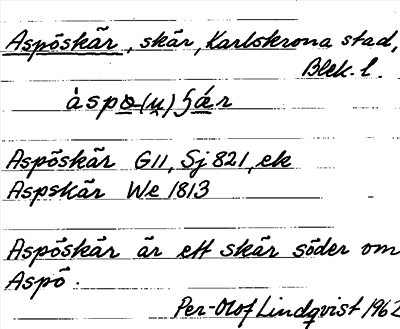 Aspöskär, skär, Karlskrona stad,
Blek. l.
àspo̲(u̲)ʃǽr
Aspöskär G11, Sj 821, ek
Aspskär We 1813
Aspöskär är ett skär söder om
Aspö.
Per-Olof Lindqvist 1962